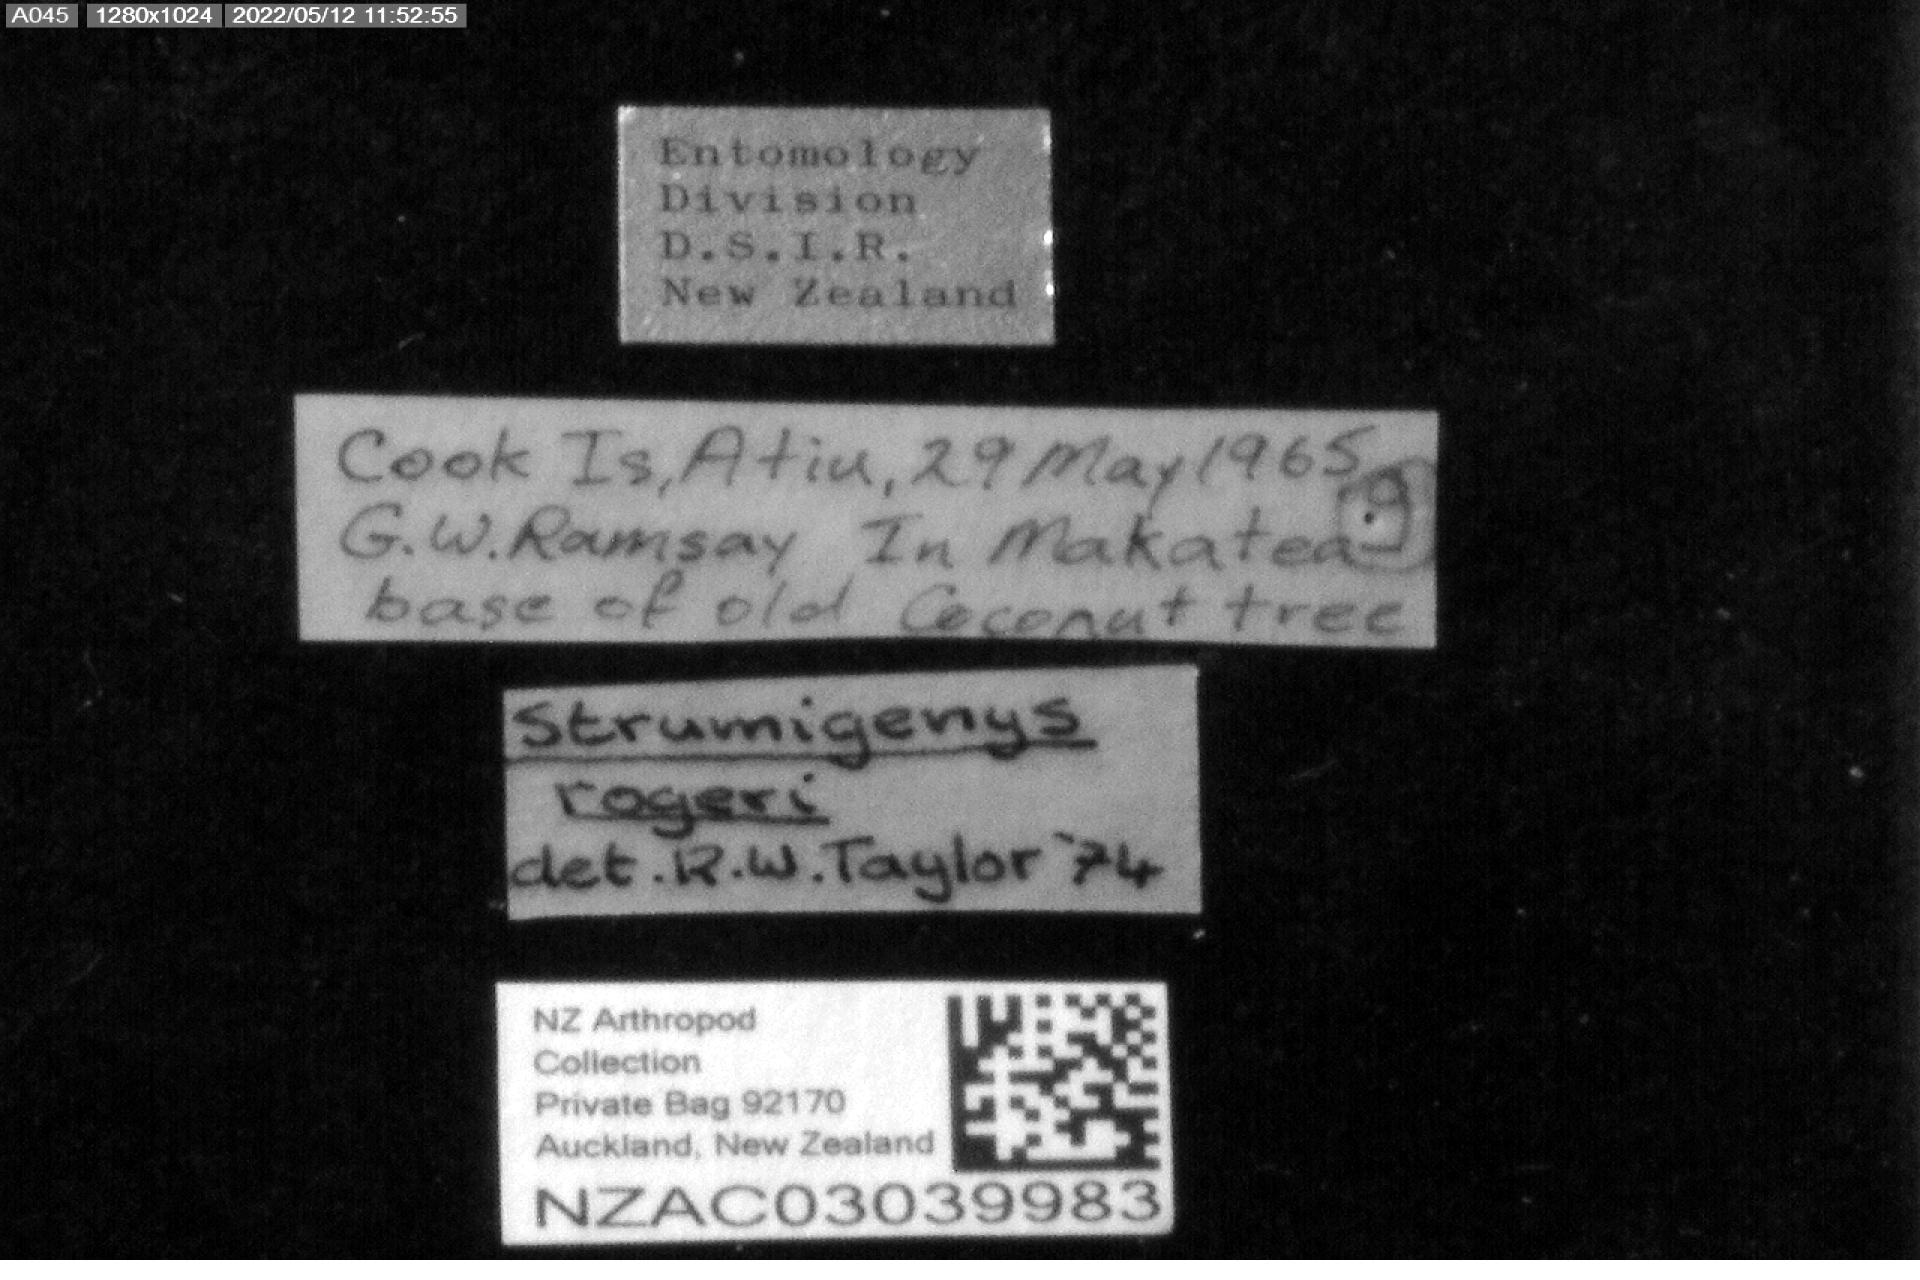 A045 1280x1024 2022/05/12 11:52:55
Entomology
Division
D.S.I.R.
New Zealand
Cook Is, Atiu, 29 May 1965
G.W. Ramsay In Makatea
base of old Coconut tree
Strumigenys
rogeri
det. R.W. Taylor '74
NZ Arthropod
Collection
Private Bag 92170
Auckland, New Zealand
NZAC03039983